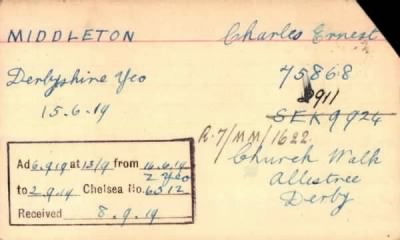 MIDDLETON Charles Ernest
Derbyshire Yeo 75868
15.6.19 2911
SEK 9924
A.7/MM/1622.
Church Walk
Allestree
Derby
Ad 6.9.19 at 13/9 from 16.6.19
2 Yeo
to 2.9.19 Chelsea No. 6312
Received 8.9.19